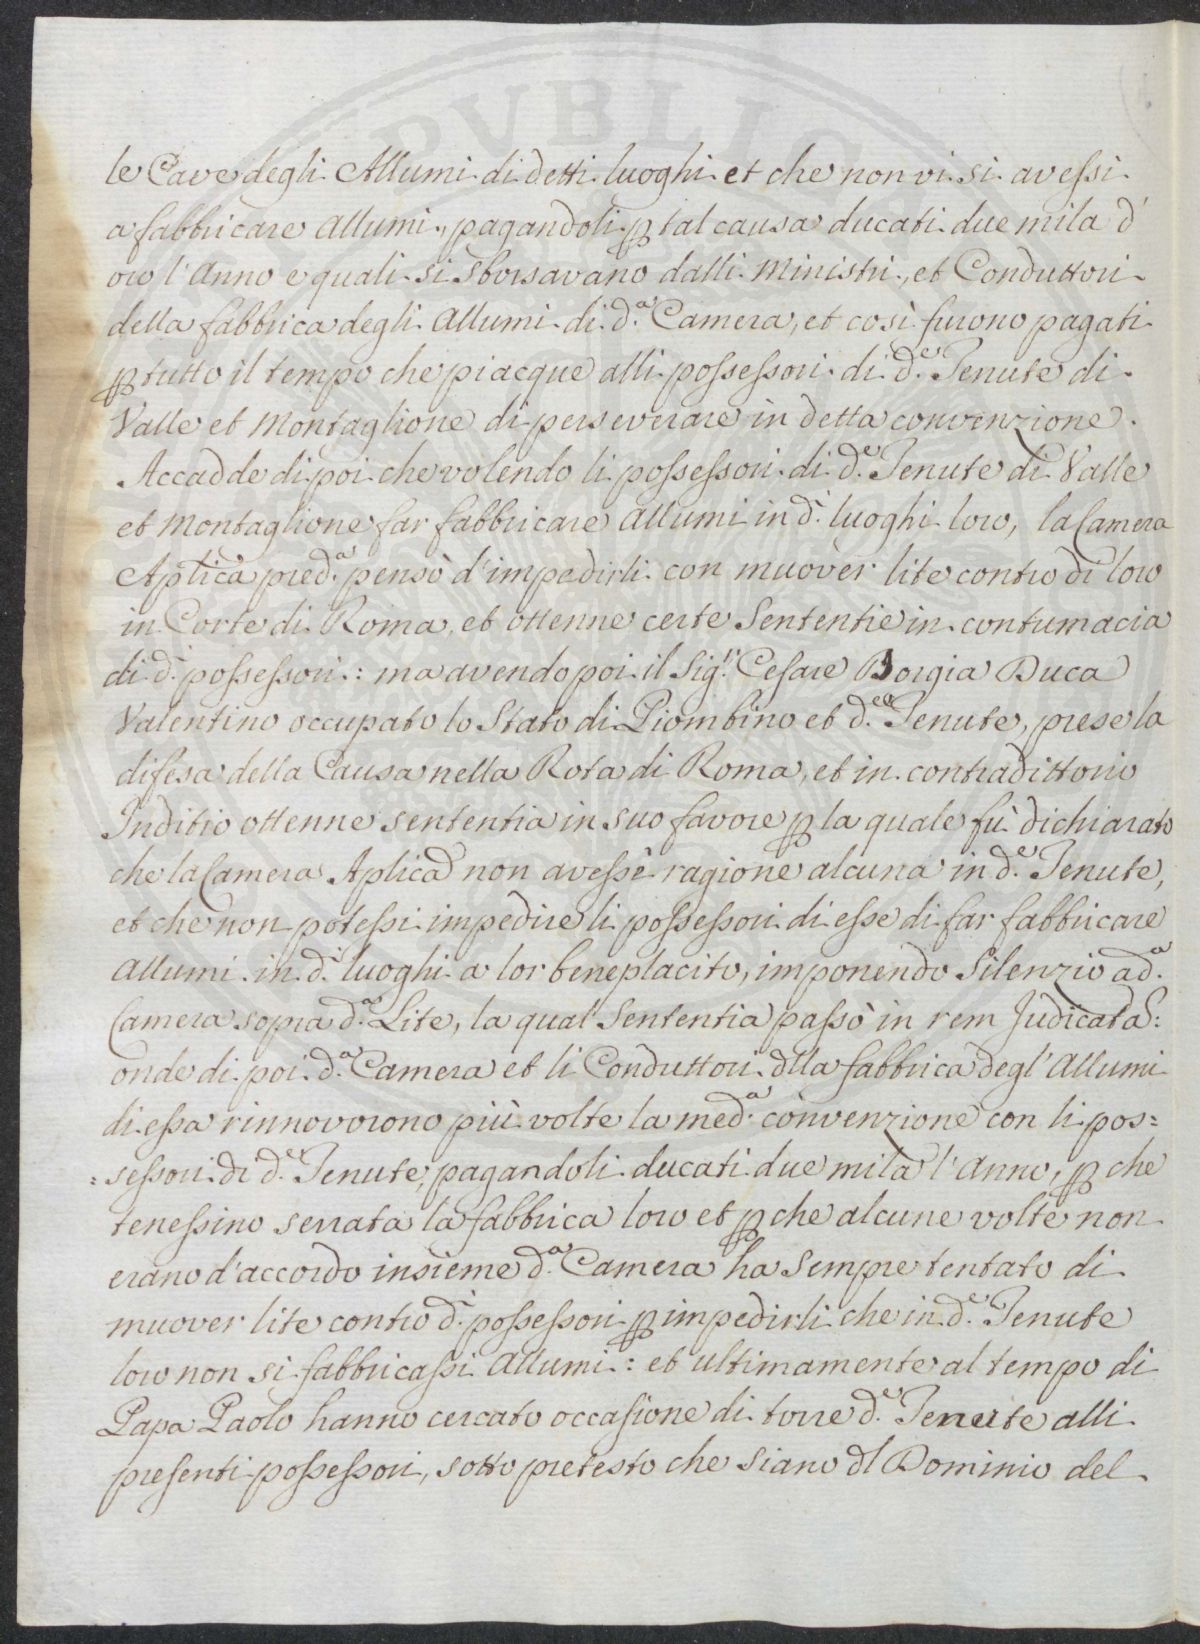 PVBLICA
le Cave degli Allumi di detti luoghi et che non vi si avessi
a fabbricare Allumi, pagandoli p tal causa ducati due mila d'
oro l'Anno e quali si sborsavano dalli Ministri, et Conduttori
della fabbrica degli Allumi di d.ª Camera, et così furono pagati
p tutto il tempo che piacque alli possessori di d.e Tenute di
Valle et Montaglione di perseverare in detta convenzione.
Accadde di poi che volendo li possessori di d.e Tenute di Valle
et Montaglione far fabbricare Allumi in d.i luoghi loro, la Camera
Aplica pred.ª pensò d'impedirli con muover lite contro di loro
in Corte di Roma, et ottenne certe Sententie in contumacia
di d.i possessori: ma avendo poi il Sig.r Cesare Borgia Duca
Valentino occupato lo Stato di Piombino et d.e Tenute, prese la
difesa della Causa nella Rota di Roma, et in contradittorio
Inditio ottenne sententia in suo favore p la quale fù dichiarato
che la Camera Aplica non avesse ragione alcuna in d.e Tenute,
et che non potessi impedire li possessori di esse di far fabbricare
Allumi in d.i luoghi a lor beneplacito, imponendo Silenzio a d.ª
Camera sopra d.ª Lite, la qual Sententia passò in rem Judicata:
onde di poi d.ª Camera et li Conduttori dlla fabbrica degl'Allumi
di essa rinnovorono più volte la med.ª convenzione con li pos=
=sessori di d.e Tenute, pagandoli ducati due mila l'Anno, p che
tenessino serrata la fabbrica loro et p che alcune volte non
erano d'accordo insieme d.ª Camera ha Sempre tentato di
muover lite contro d.i possessori p impedirli che in d.e Tenute
loro non si fabbricassi Allumi: et ultimamente al tempo di
Papa Paolo hanno cercato occasione di torre d.e Tenute alli
presenti possessori, sotto pretesto che siano dl Dominio del